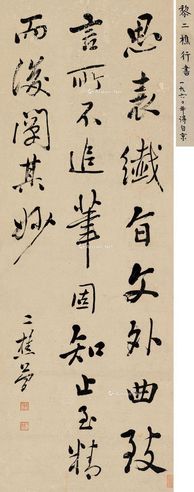 黎二樵行書
一九六〇年得自京
思表纖旨文外曲致
言所不追筆固知止至精
而後闡其妙
二樵簡